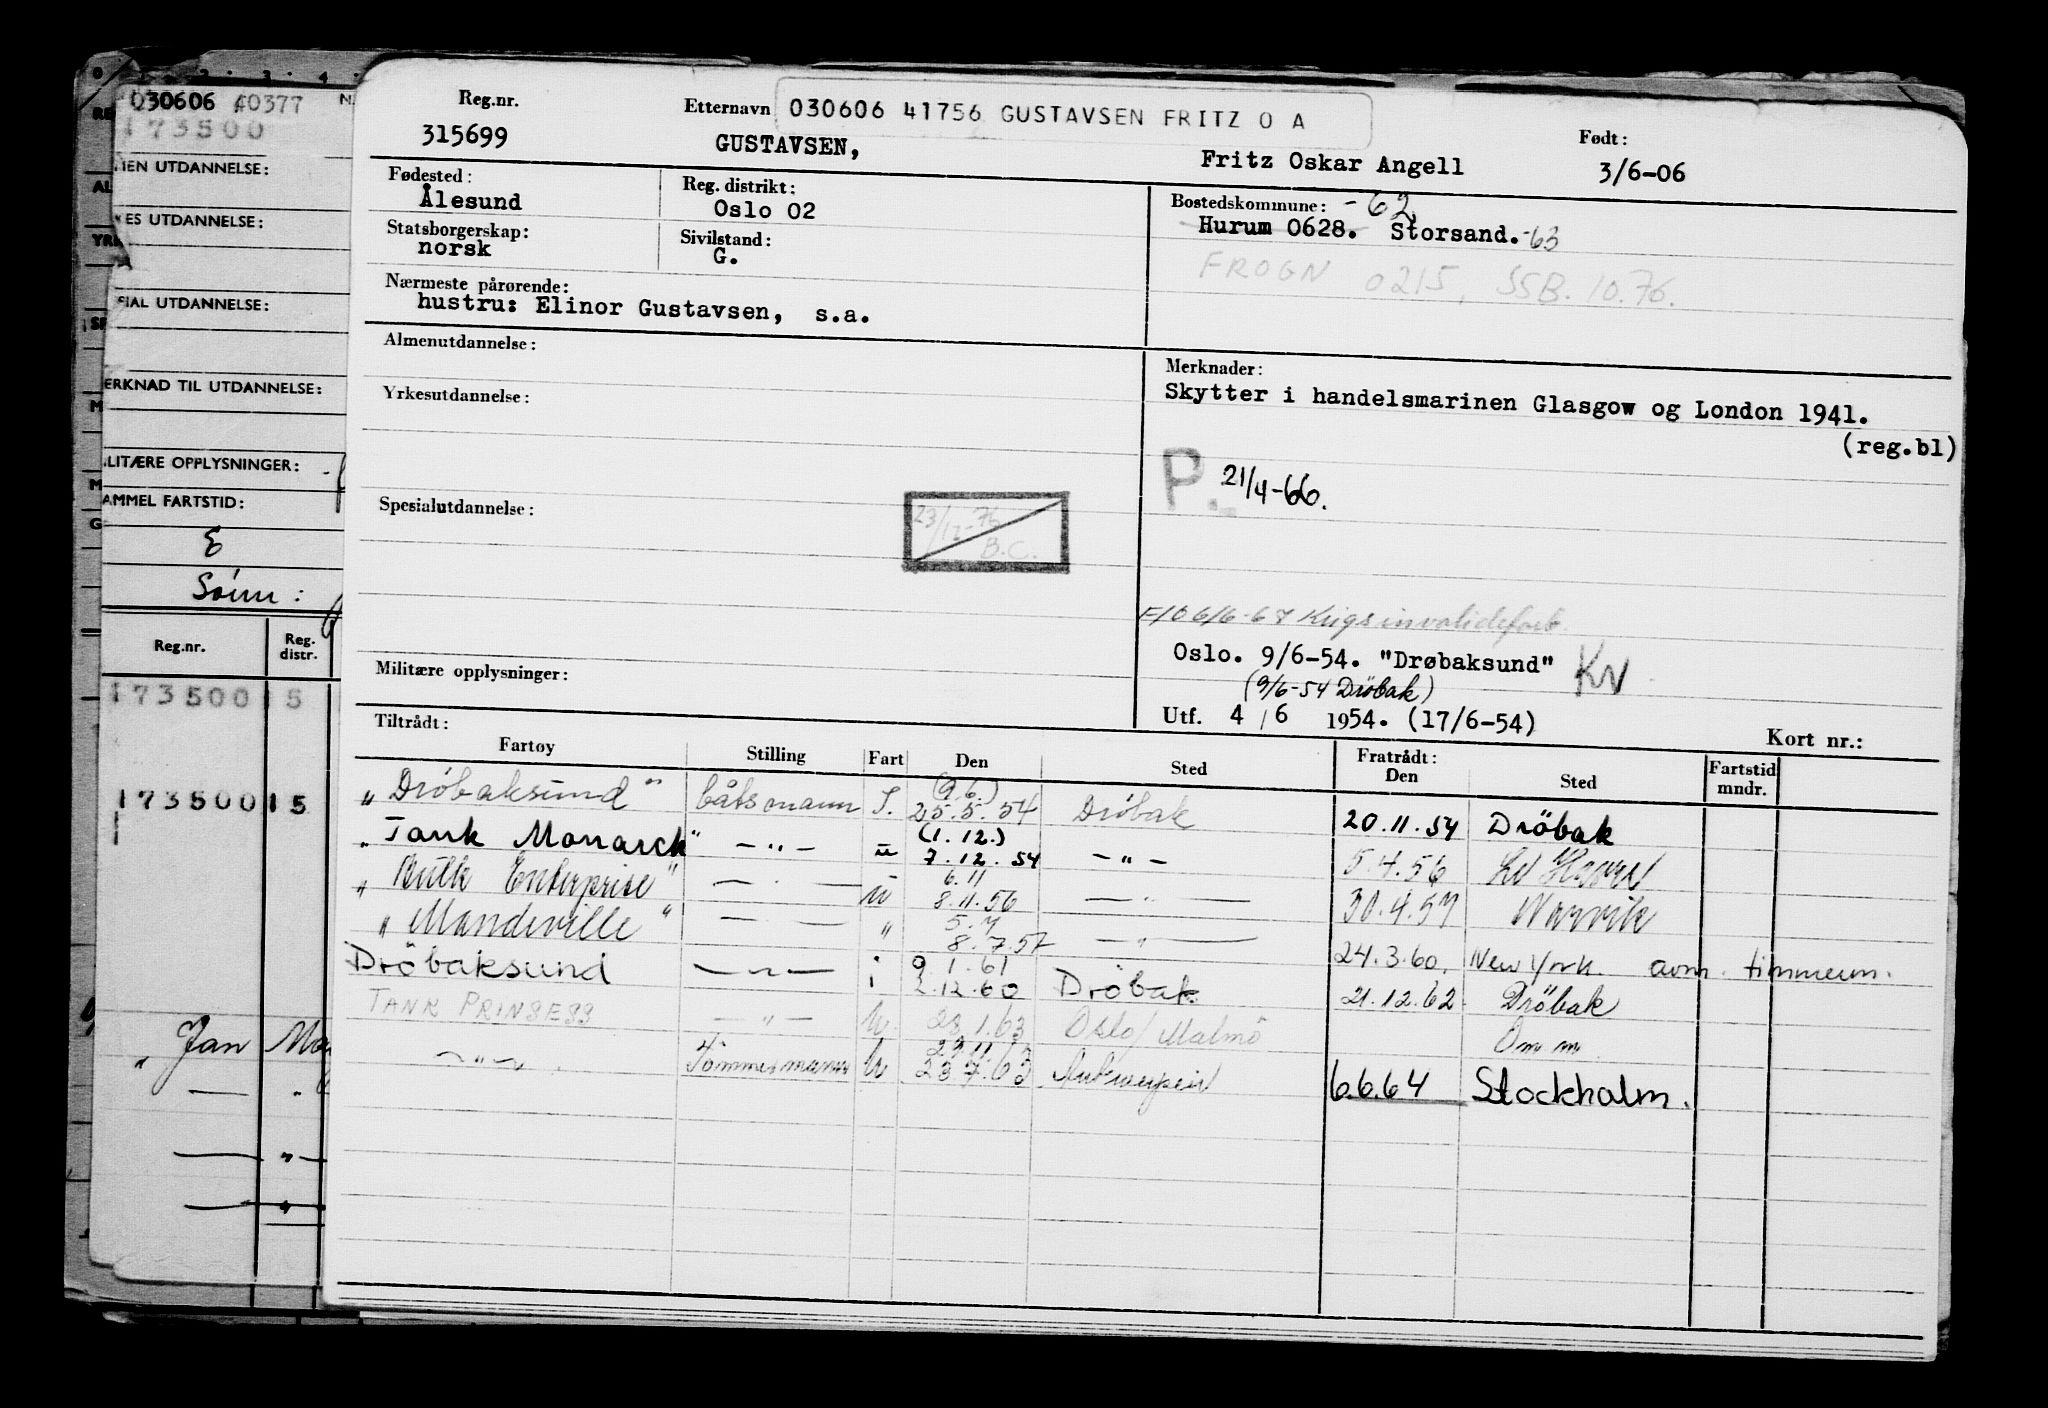 030606 40377
173500
UTDANNELSE:
ES UTDANNELSE:
SIAL UTDANNELSE:
ERKNAD TIL UTDANNELSE:
LITÆRE OPPLYSNINGER:
AMMEL FARTSTID:
E
Reg.nr. Reg. distr.
173500 5
173500 5
" Jan
Reg.nr. Etternavn 030606 41756 GUSTAVSEN FRITZ O A Født:
315699 GUSTAVSEN, Fritz Oskar Angell 3/6-06
Fødested: Reg. distrikt: Bostedskommune: -62
Ålesund Oslo 02 Hurum 0628. Storsand. -63
Statsborgerskap: Sivilstand:
norsk G. FROGN 0215, SSB. 10.76.
Nærmeste pårørende:
hustru: Elinor Gustavsen, s.a.
Almenutdannelse: Merknader:
Skytter i handelsmarinen Glasgow og London 1941.
(reg.bl)
Yrkesutdannelse:
P. 21/4-66.
Spesialutdannelse: 23/12-76 B.C.
6/6-67 Krigsinvalideforb.
Oslo. 9/6-54. "Drøbaksund" KV
(9/6-54 Dröbak)
Militære opplysninger:
Utf. 4/6 1954. (17/6-54)
Tiltrådt: Kort nr.:
Fartøy Stilling Fart Den Sted Fratrådt: Den Sted Fartstid mndr.
"Dröbaksund" båtsmann (9.6.) 25.5.54 Dröbak 20.11.54 Dröbak
"Tank Monarch" — " — u (1.12.) 7.12.54 — " — 5.4.56 Le Havre
"Bulk Enterprise" — " — u 6.11 8.11.56 — " — 30.4.57 Narvik
"Mandeville" — " — " 5.7 8.7.57 — " — 24.3.60. New York. avm. tømmerm.
Dröbaksund — " — i 9.1.61 2.12.60 Dröbak 21.12.62 Dröbak
TANK PRINSESS — " — U 28.1.63 Oslo/Malmö Om m
— " — Tömmermann U 23.7.63 Antwerpen 6.6.64 Stockholm.